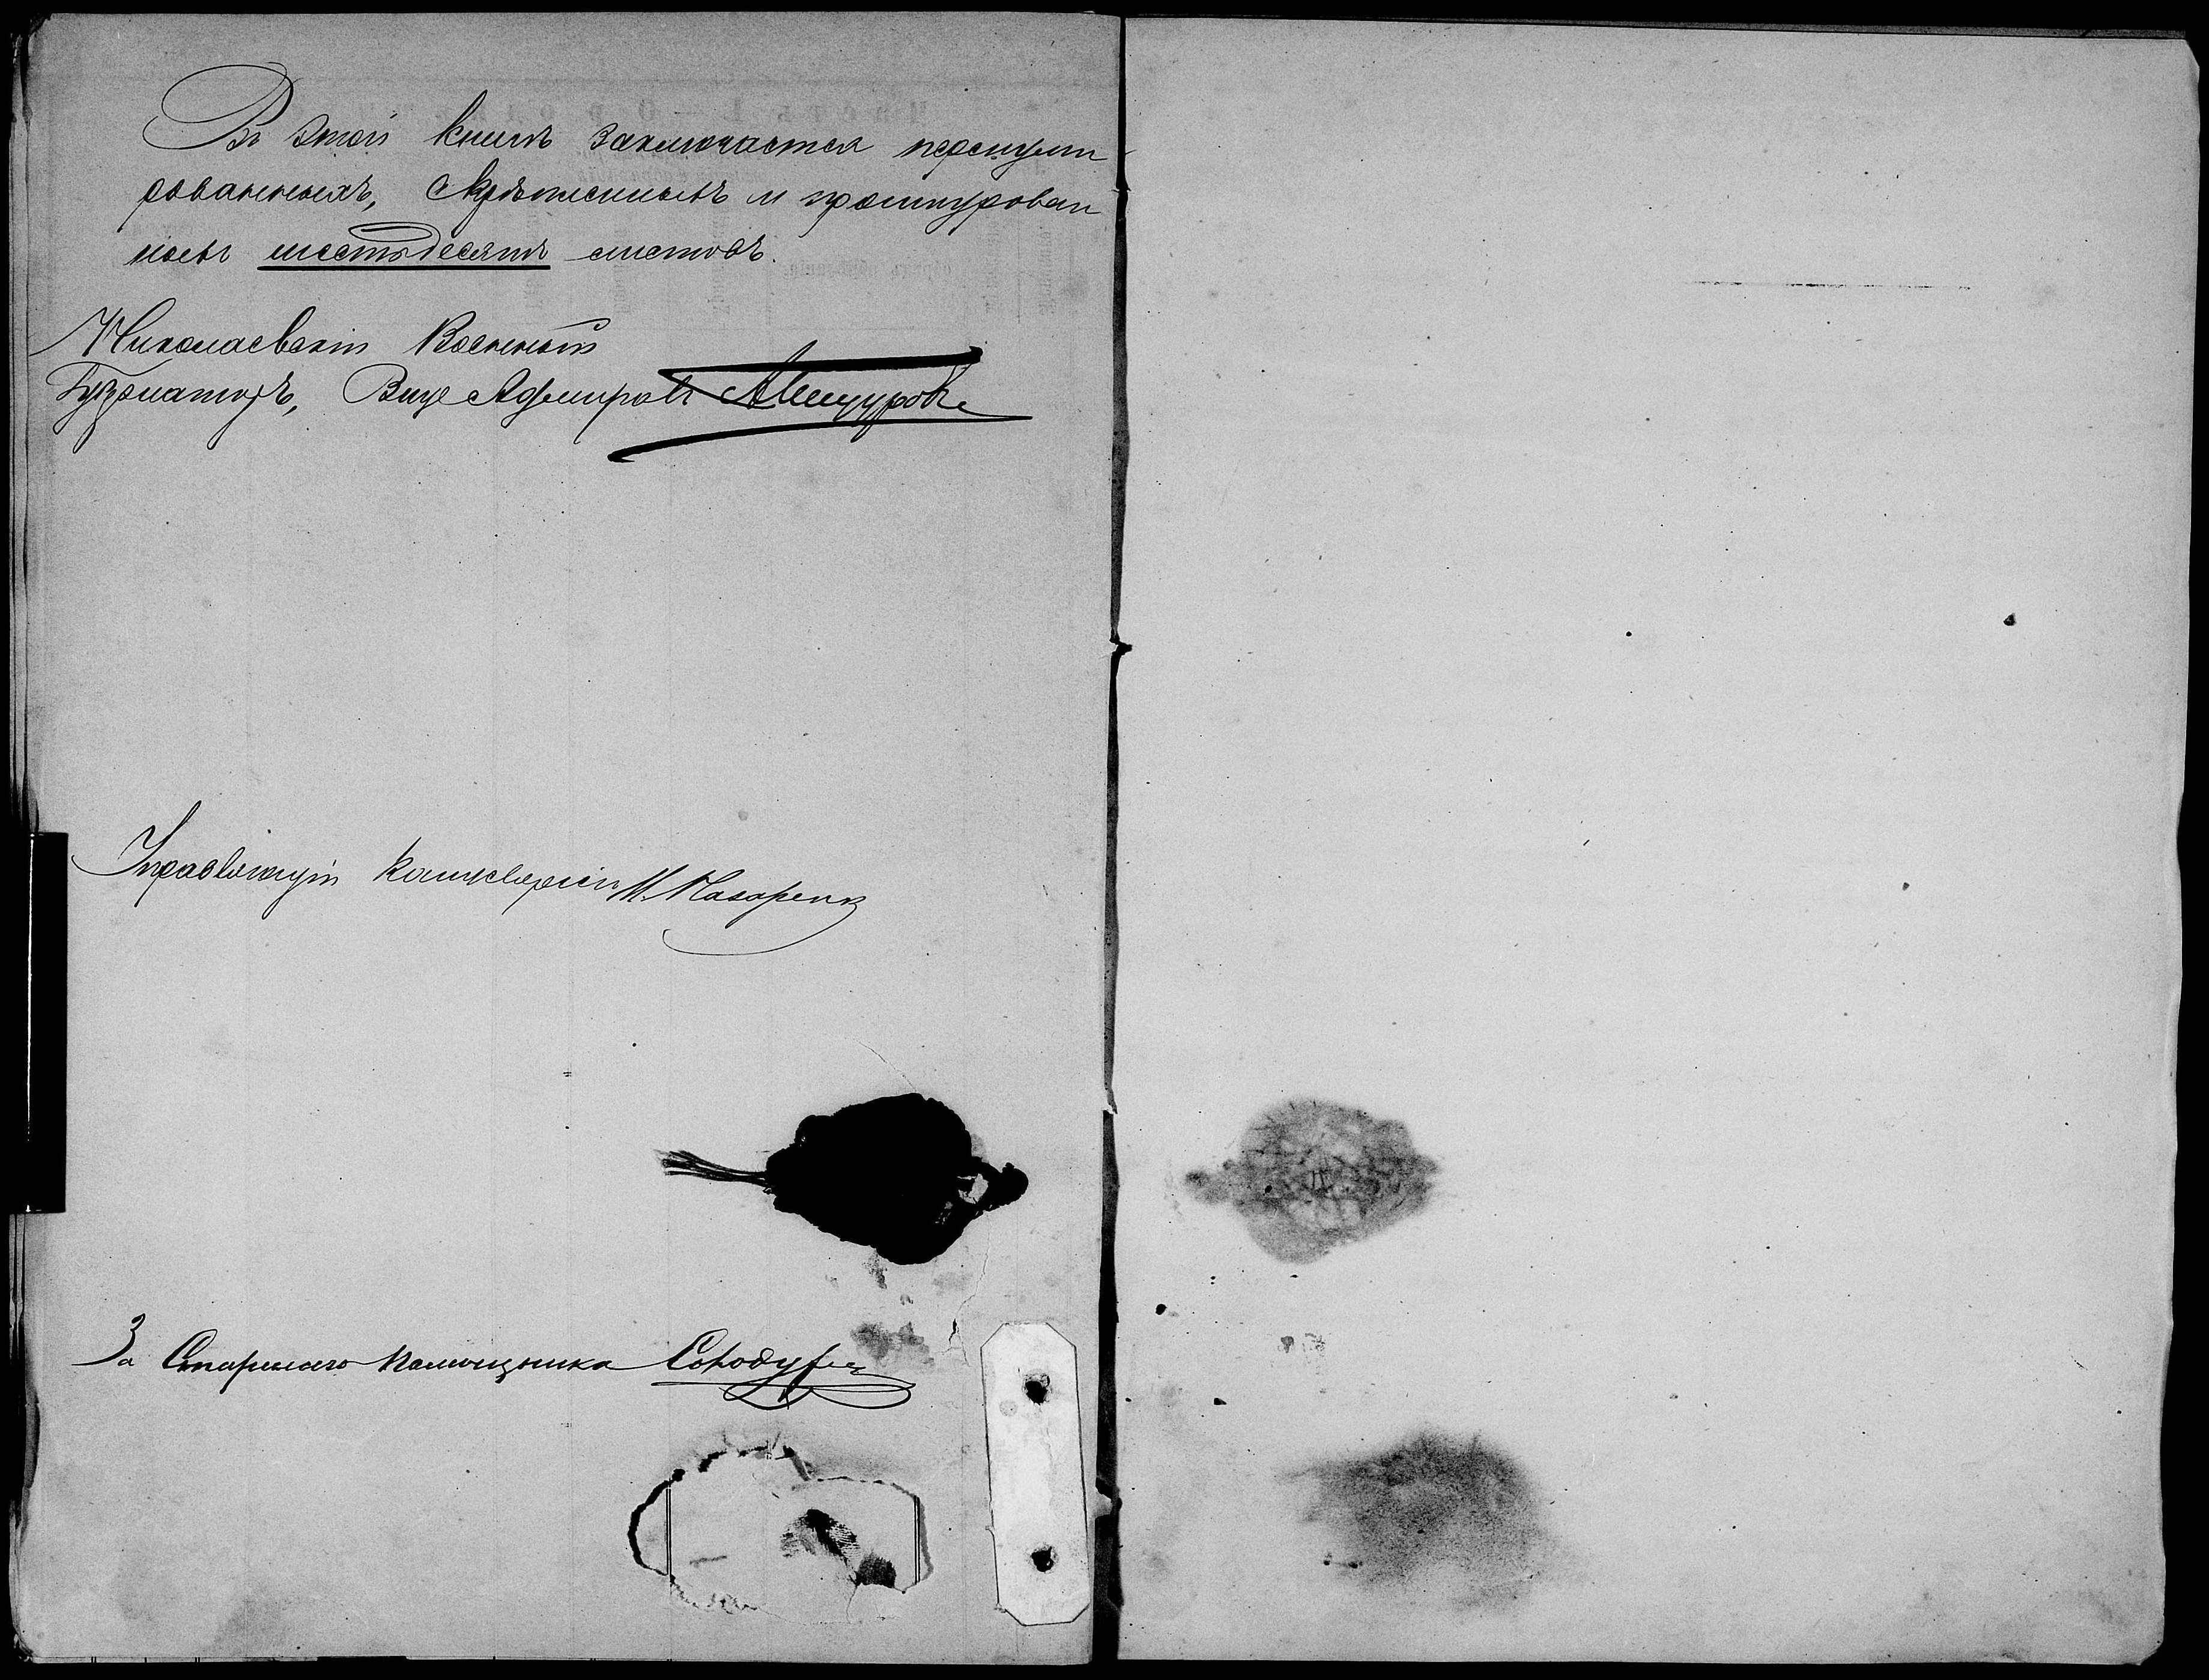 Въ этой книгѣ заключается перенуме
рованныхъ, скрѣпленныхъ и прошнурован
ныхъ шестьдесятъ листовъ.
Николаевскій Военный
Губернаторъ, Вице Адмиралъ АПещуровъ
Управляющій канцеляріею Н. Назаренко
За Старшаго помощника